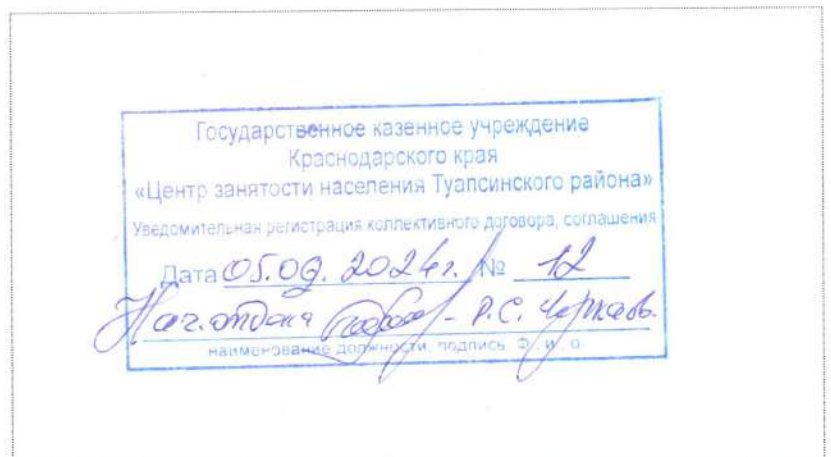 Государственное казенное учреждение
Краснодарского края
«Центр занятости населения Туапсинского района»
Уведомительная регистрация коллективного договора, соглашения
Дата 05.09.2024г. № 12
Нач. отдела - Р.С.
наименование должности, подпись, Ф., И., О